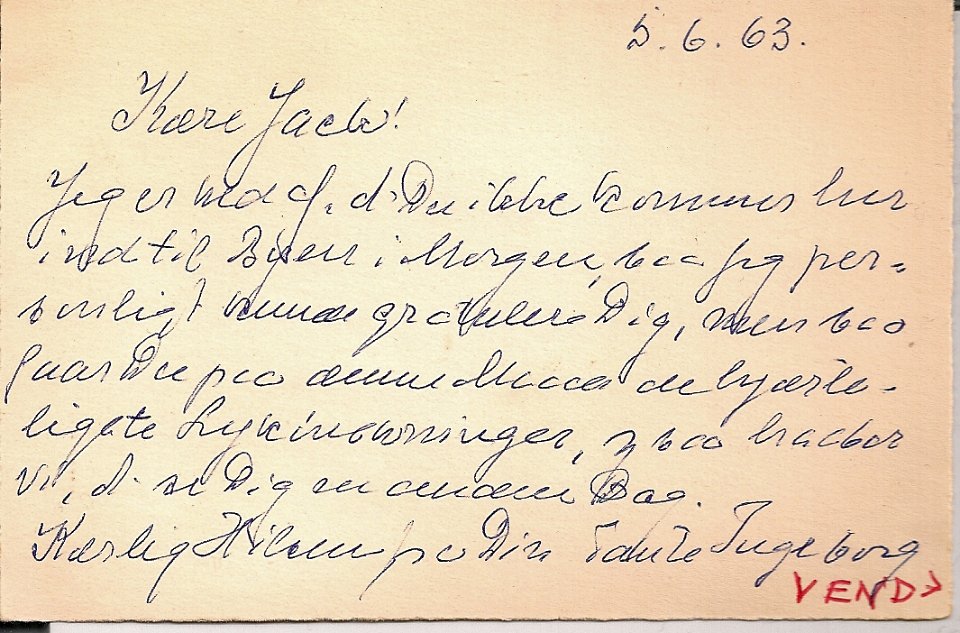 5.6.63.
Kære Jack!
Jeg er ked af, at Du ikke kommer her
ind til Byen i Morgen, saa jeg per-
sonligt kunde gratulere Dig, men saa
faar Du paa denne Maade de hjærte-
ligste Lykønskninger, og saa haaber
vi, at se Dig en anden Dag.
Kærlig Hilsen fra Din Tante Ingeborg
VEND>